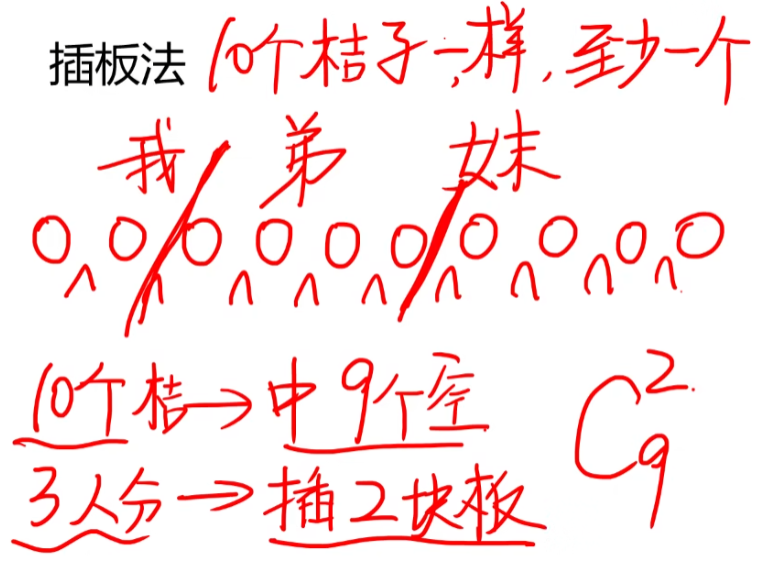 插板法 10个桔子一样，至少一个
我 弟 妹
10个桔→中9个空
3人分→插2块板
C₉²